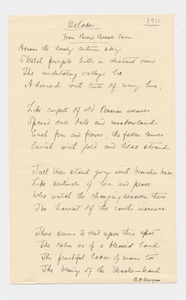 October
1911
From Brook Farm
Across the lovely autumn day
Stretch purple hills in distant view
The undulating valleys lie
Adorned with tints of every hue.
Like carpets of old Persian weave
Spread over vale and meadowland
Each fern and flower, the fallen leaves
Enrich with gold and blue
Tall trees stand grey with branches bare
Like sentinels of love and peace
Who watch the changing seasons there
The harvest of the earth's increase
There seems to rest upon this spot
The calm as of a blessed land
The fruitful labor of man's toil
The blessing of the Master-hand.